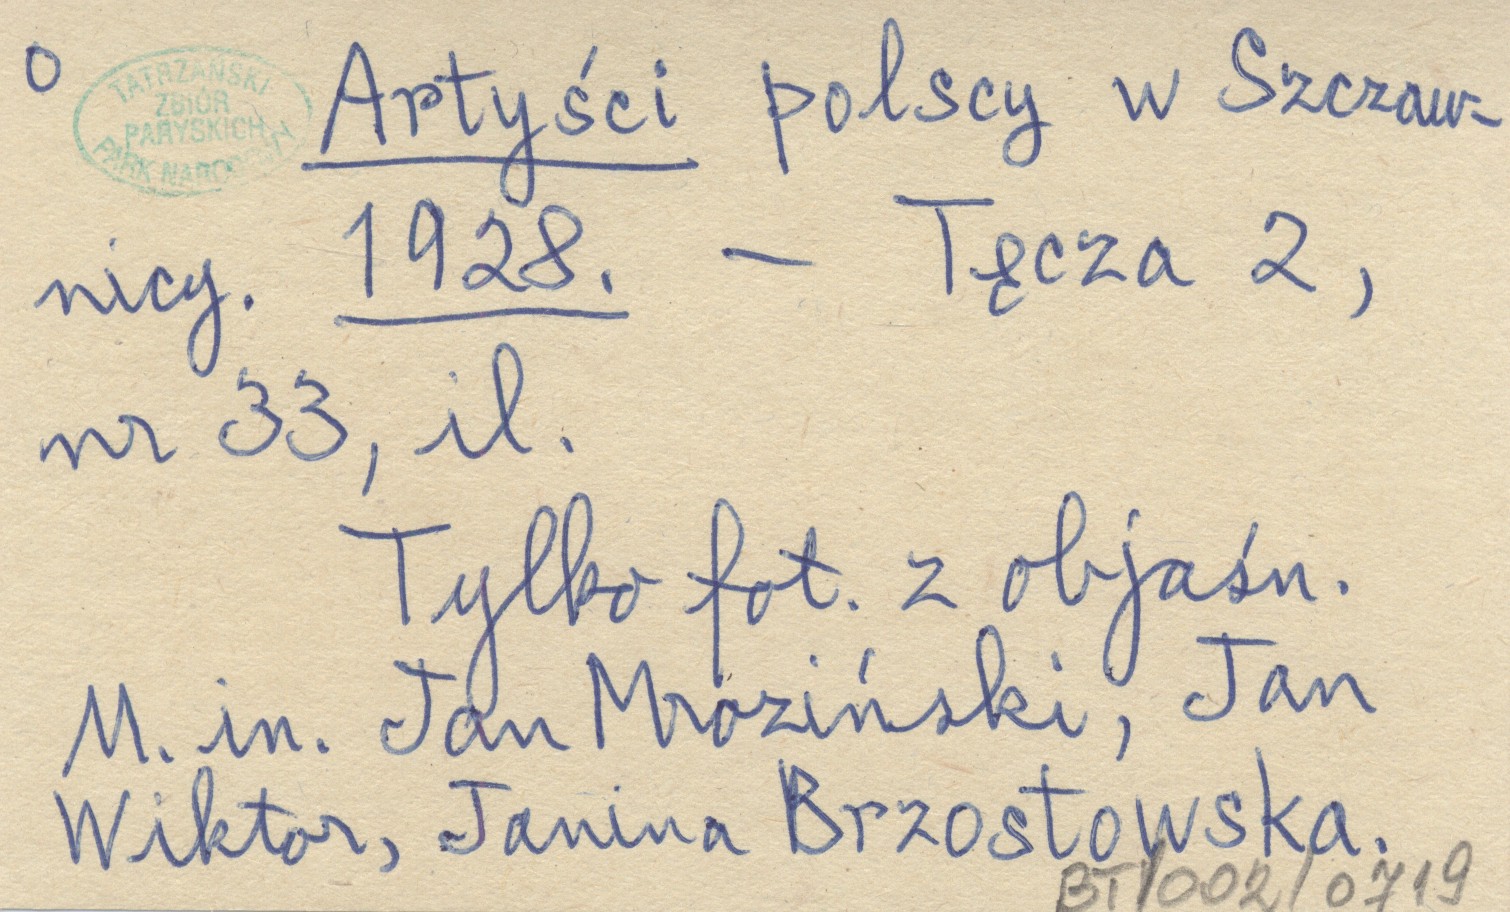 O
TATRZAŃSKI
ZBIÓR
PARYSKICH
PARK NARODOWY
Artyści polscy w Szczaw-
nicy. 1928. — Tęcza 2,
nr 33, il.
Tylko fot. z objaśn.
M. in. Jan Mroziński, Jan
Wiktor, Janina Brzostowska.
BT/002/0719